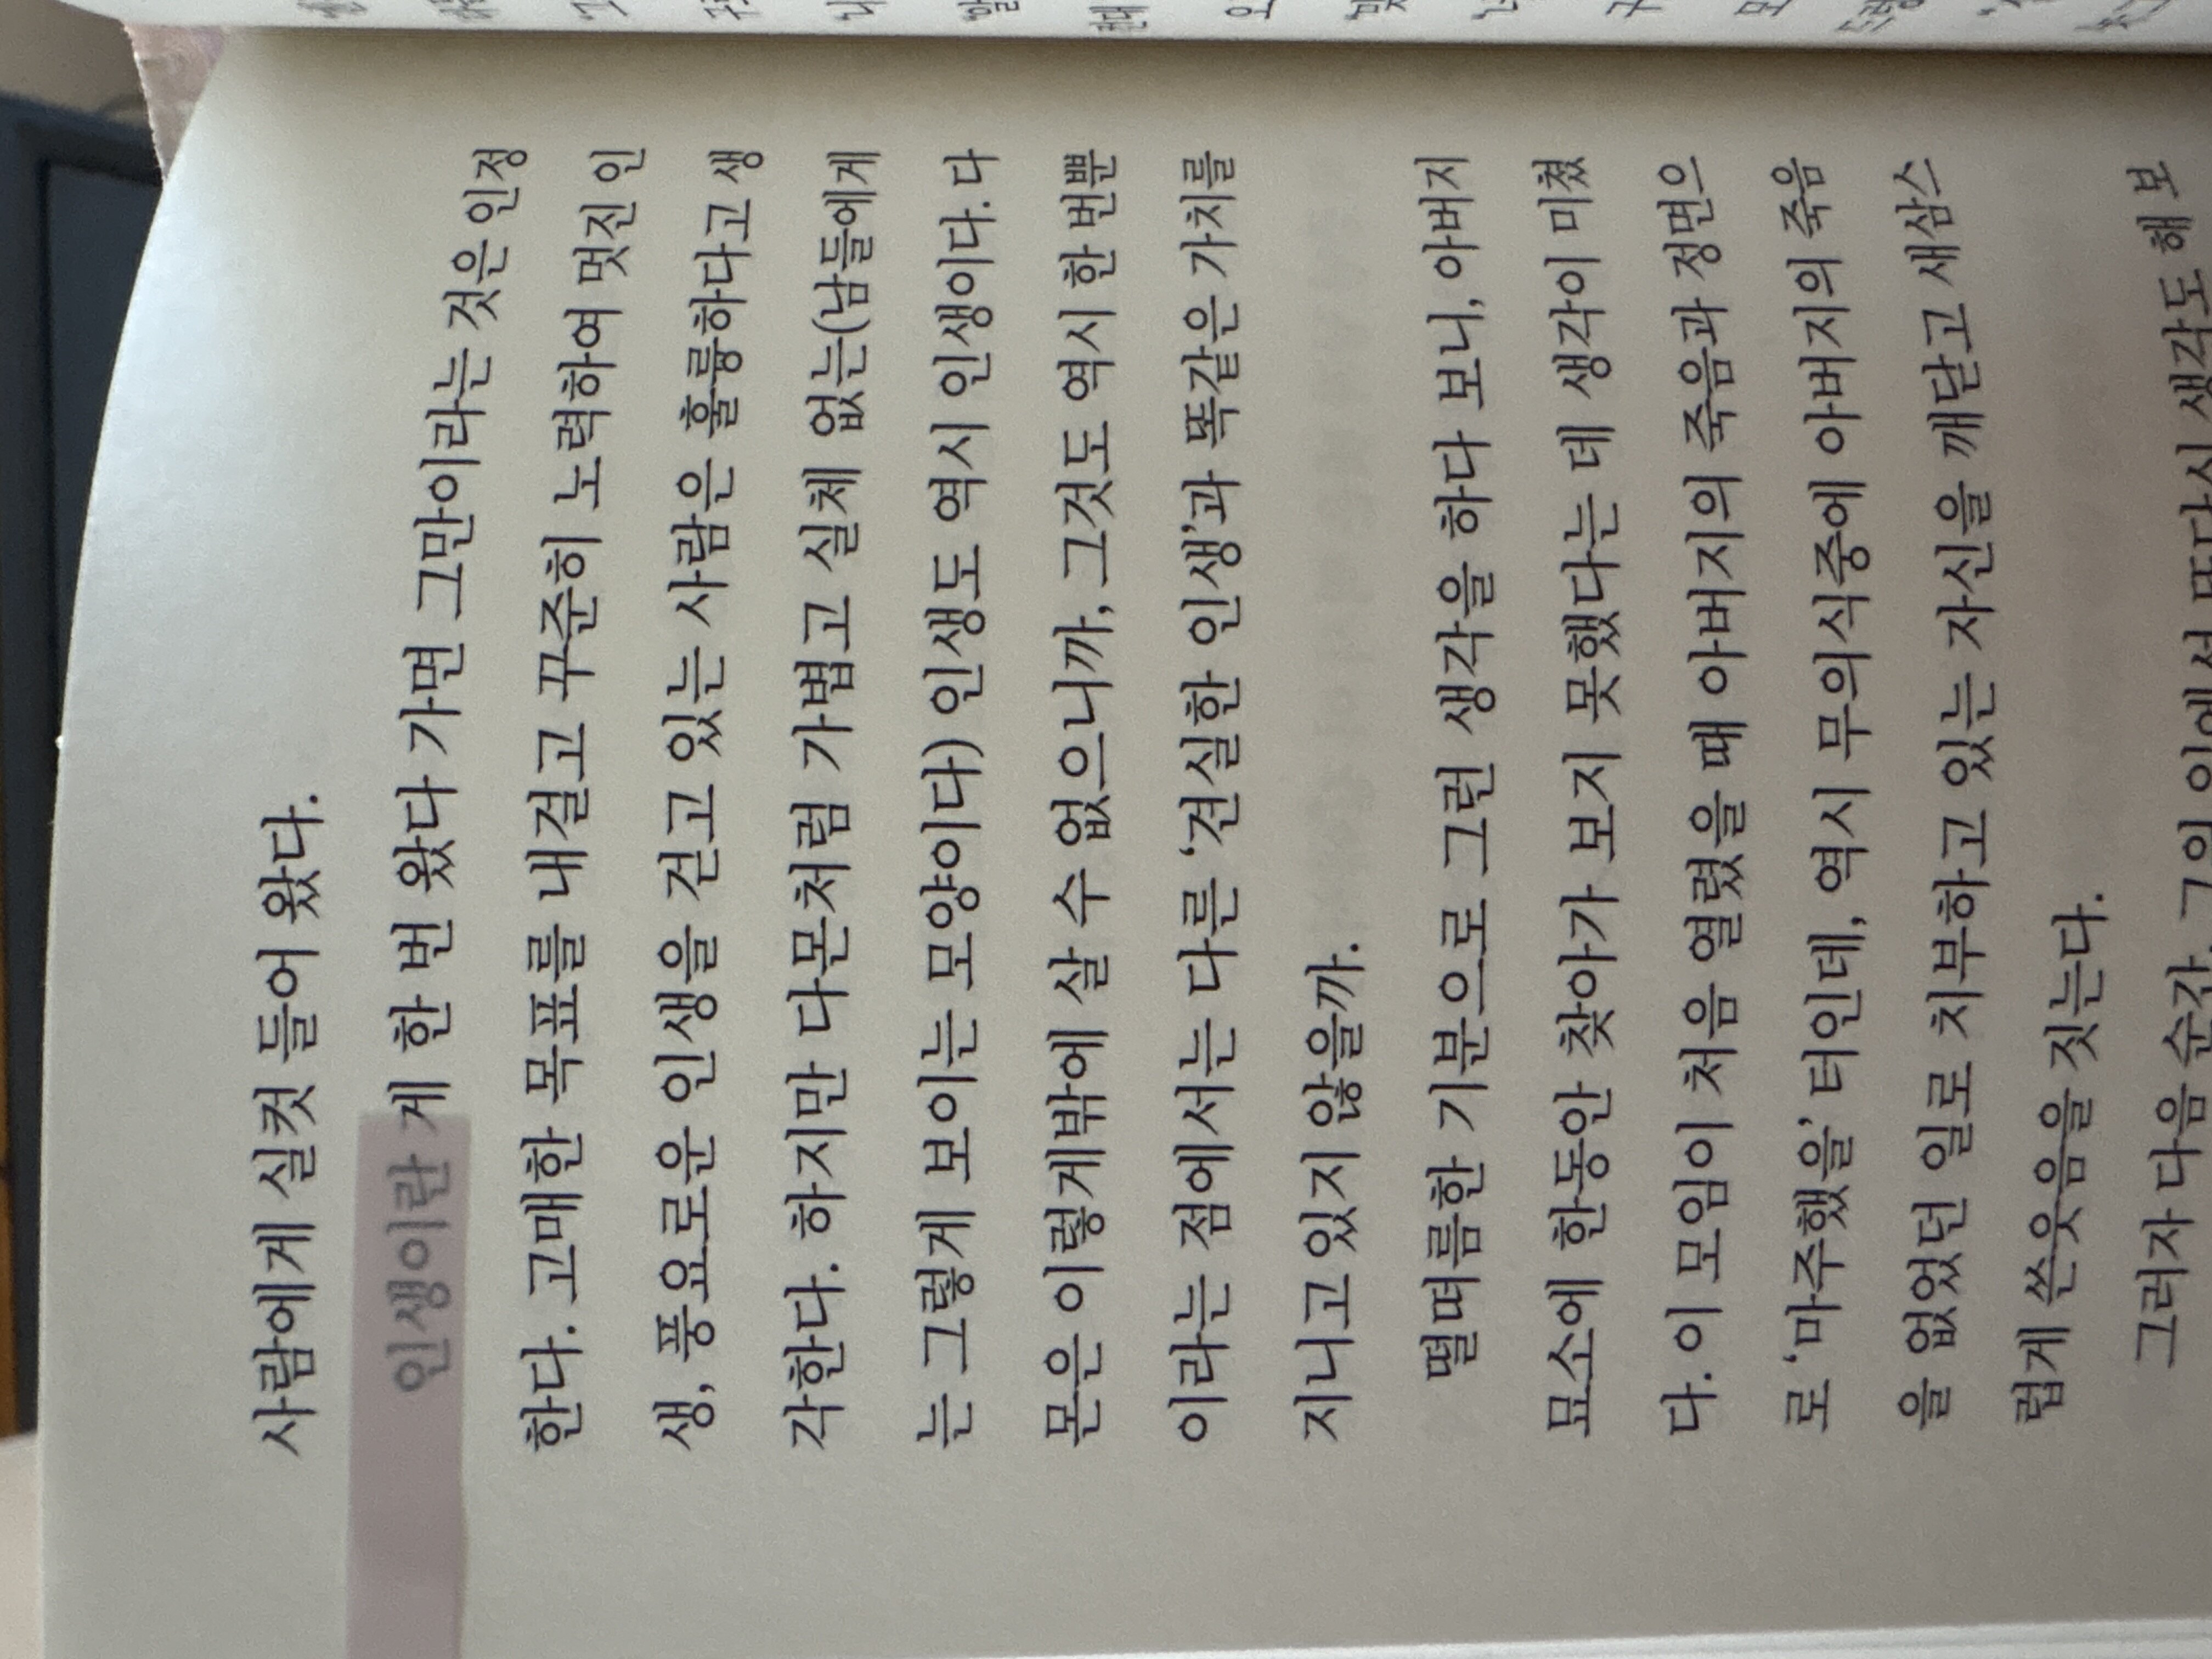 사람에게 실컷 들어 왔다.
인생이란 게 한 번 왔다 가면 그만이라는 것은 인정
한다. 고매한 목표를 내걸고 꾸준히 노력하여 멋진 인
생, 풍요로운 인생을 걷고 있는 사람은 훌륭하다고 생
각한다. 하지만 다몬처럼 가볍고 실체 없는(남들에게
는 그렇게 보이는 모양이다) 인생도 역시 인생이다. 다
몬은 이렇게밖에 살 수 없으니까, 그것도 역시 한 번뿐
이라는 점에서는 다른 ‘견실한 인생’과 똑같은 가치를
지니고 있지 않을까.
떨떠름한 기분으로 그런 생각을 하다 보니, 아버지
묘소에 한동안 찾아가 보지 못했다는 데 생각이 미쳤
다. 이 모임이 처음 열렸을 때 아버지의 죽음과 정면으
로 ‘마주했을’ 터인데, 역시 무의식중에 아버지의 죽음
을 없었던 일로 치부하고 있는 자신을 깨닫고 새삼스
럽게 쓴웃음을 짓는다.
그러자 다음 순간, 그의 안에서 또다시 생각도 해 보